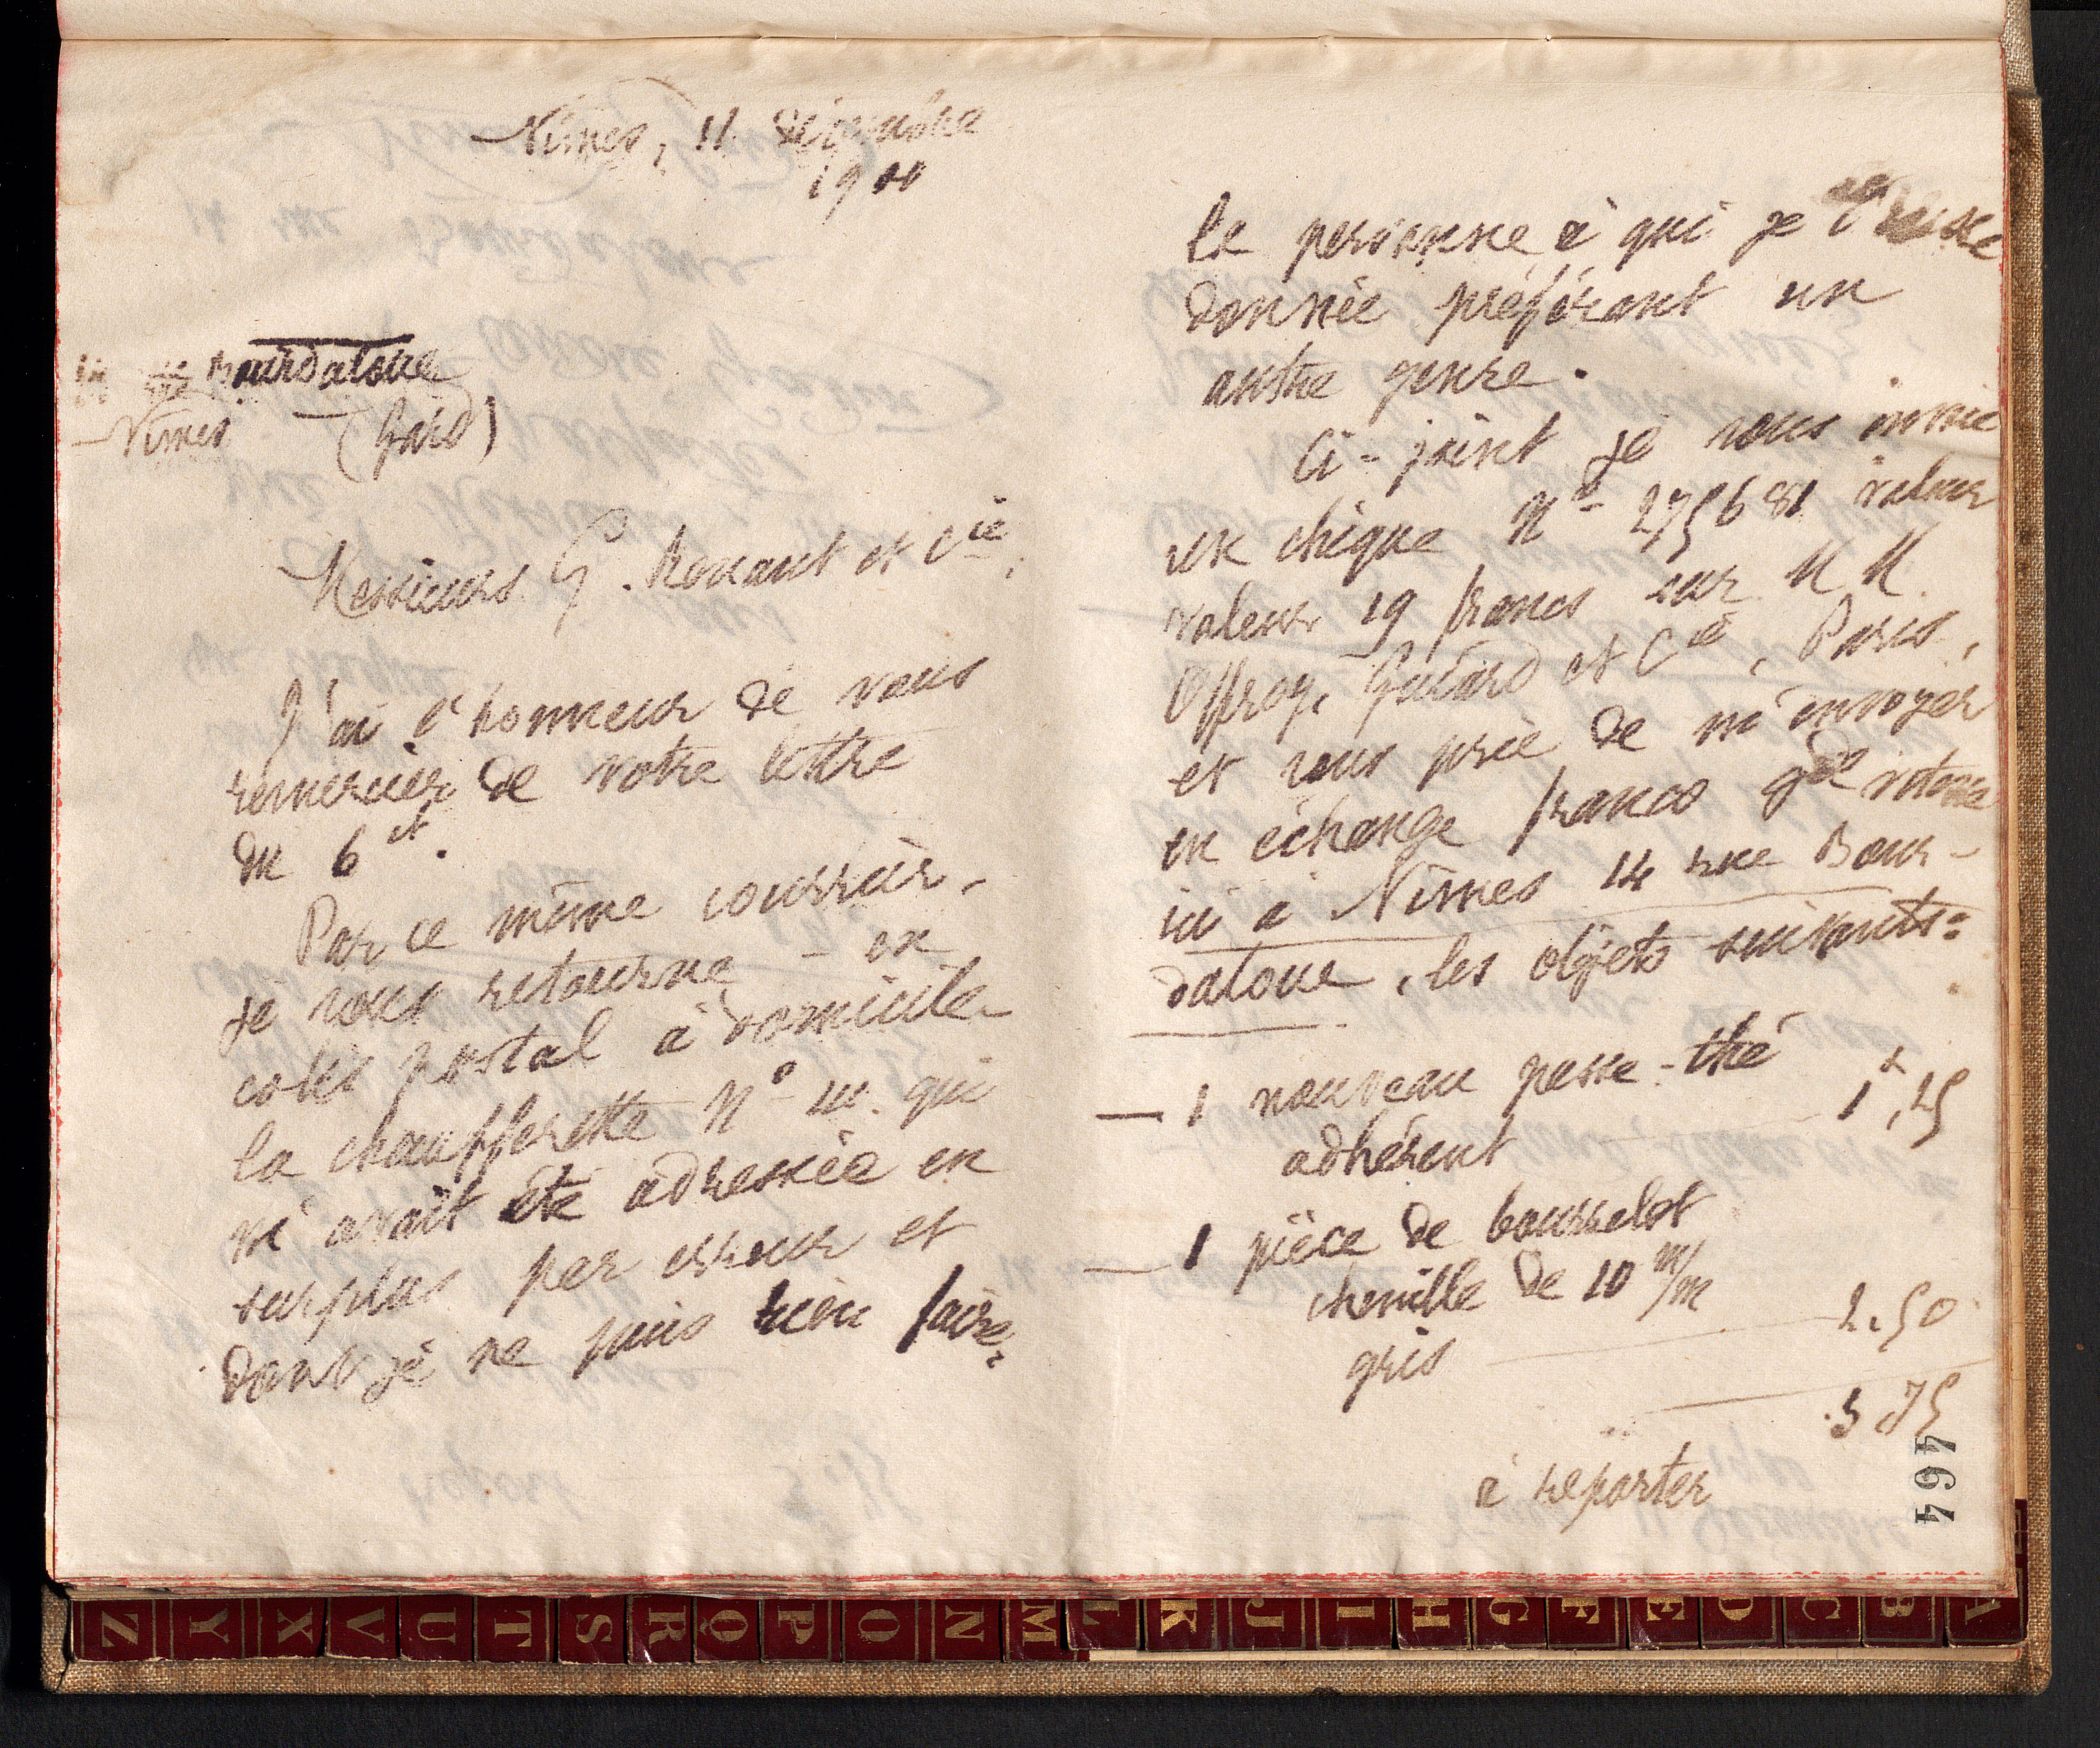 Nîmes, 11 décembre
1900
14 rue Bourdaloue
Nîmes (Gard)
Messieurs G. Renault et Cie,
J'ai l'honneur de vous
remercier de votre lettre
du 6 ct.
Par ce même courrier,
je vous retourne – en
colis postal à domicile
la chaufferette No qui
m'avait été adressée en
surplus par erreur et
dont je ne puis rien faire,
la personne à qui je l'eusse
donnée préférant un
autre genre.
Ci-joint je vous envoie
un chèque No 275681 valeur
valeur 19 francs sur M M.
Offroy, Guiard et Cie, Paris,
et vous prie de m'envoyer
en échange franco gde vitesse
ici à Nîmes 14 rue Bour-
daloue, les objets suivants:
— 1 nouveau passe-thé
adhérent 1f,25
— 1 pièce de bourrelet
chenille de 10 m/m
gris 2.50
3 75
à reporter
464
Z Y X V U T S R Q P O N M L K J I H G F E D C B A